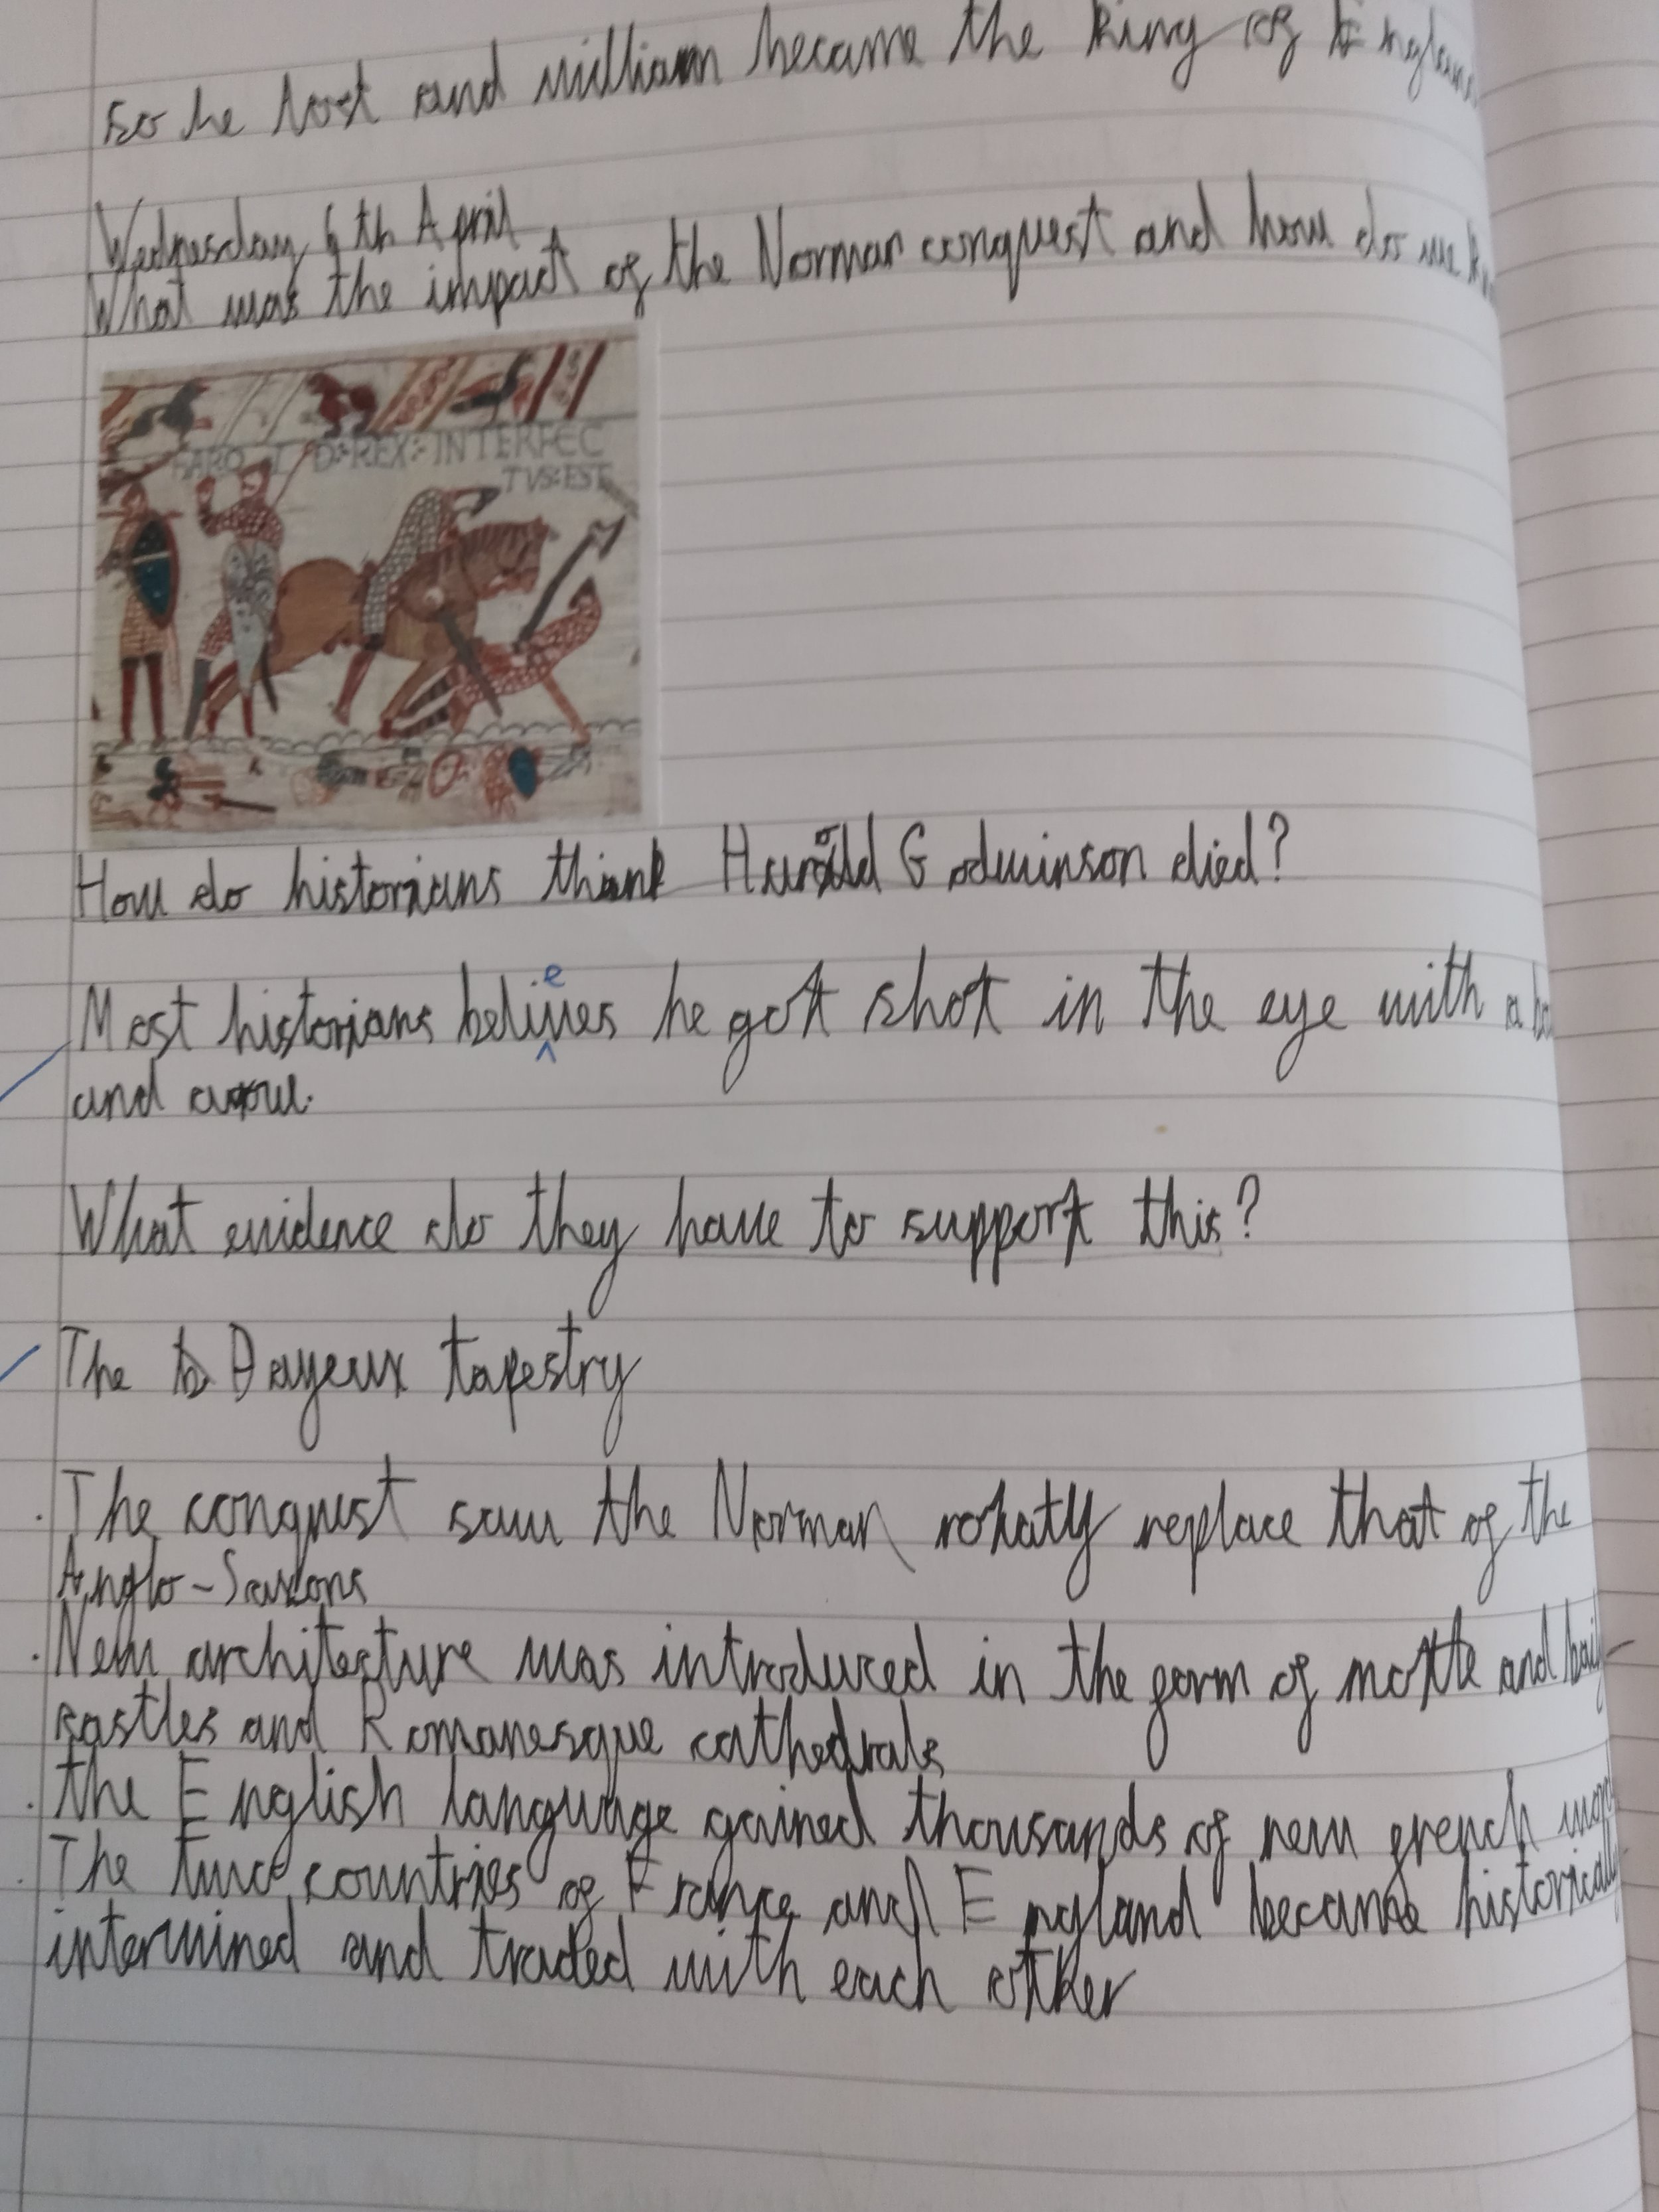 So he lost and william became the King of England
Wednesday 6th April
What was the impact of the Norman conquest and how do we
HAROLD:REX:INTERFEC
TVS:EST
How do historians think Harold Godwinson died?
Most historians belieives he got shot in the eye with a
and arow.
What evidence do they have to support this?
The Bayeux tapestry
· The conquest saw the Norman replace that of the
Anglo-Saxons
· New architecture was introduced in the form of motte and
castles and Romanesque cathedrals
· the English language gained thousands of new french
· The two countries of France and England became historically
intermined and traded with each other